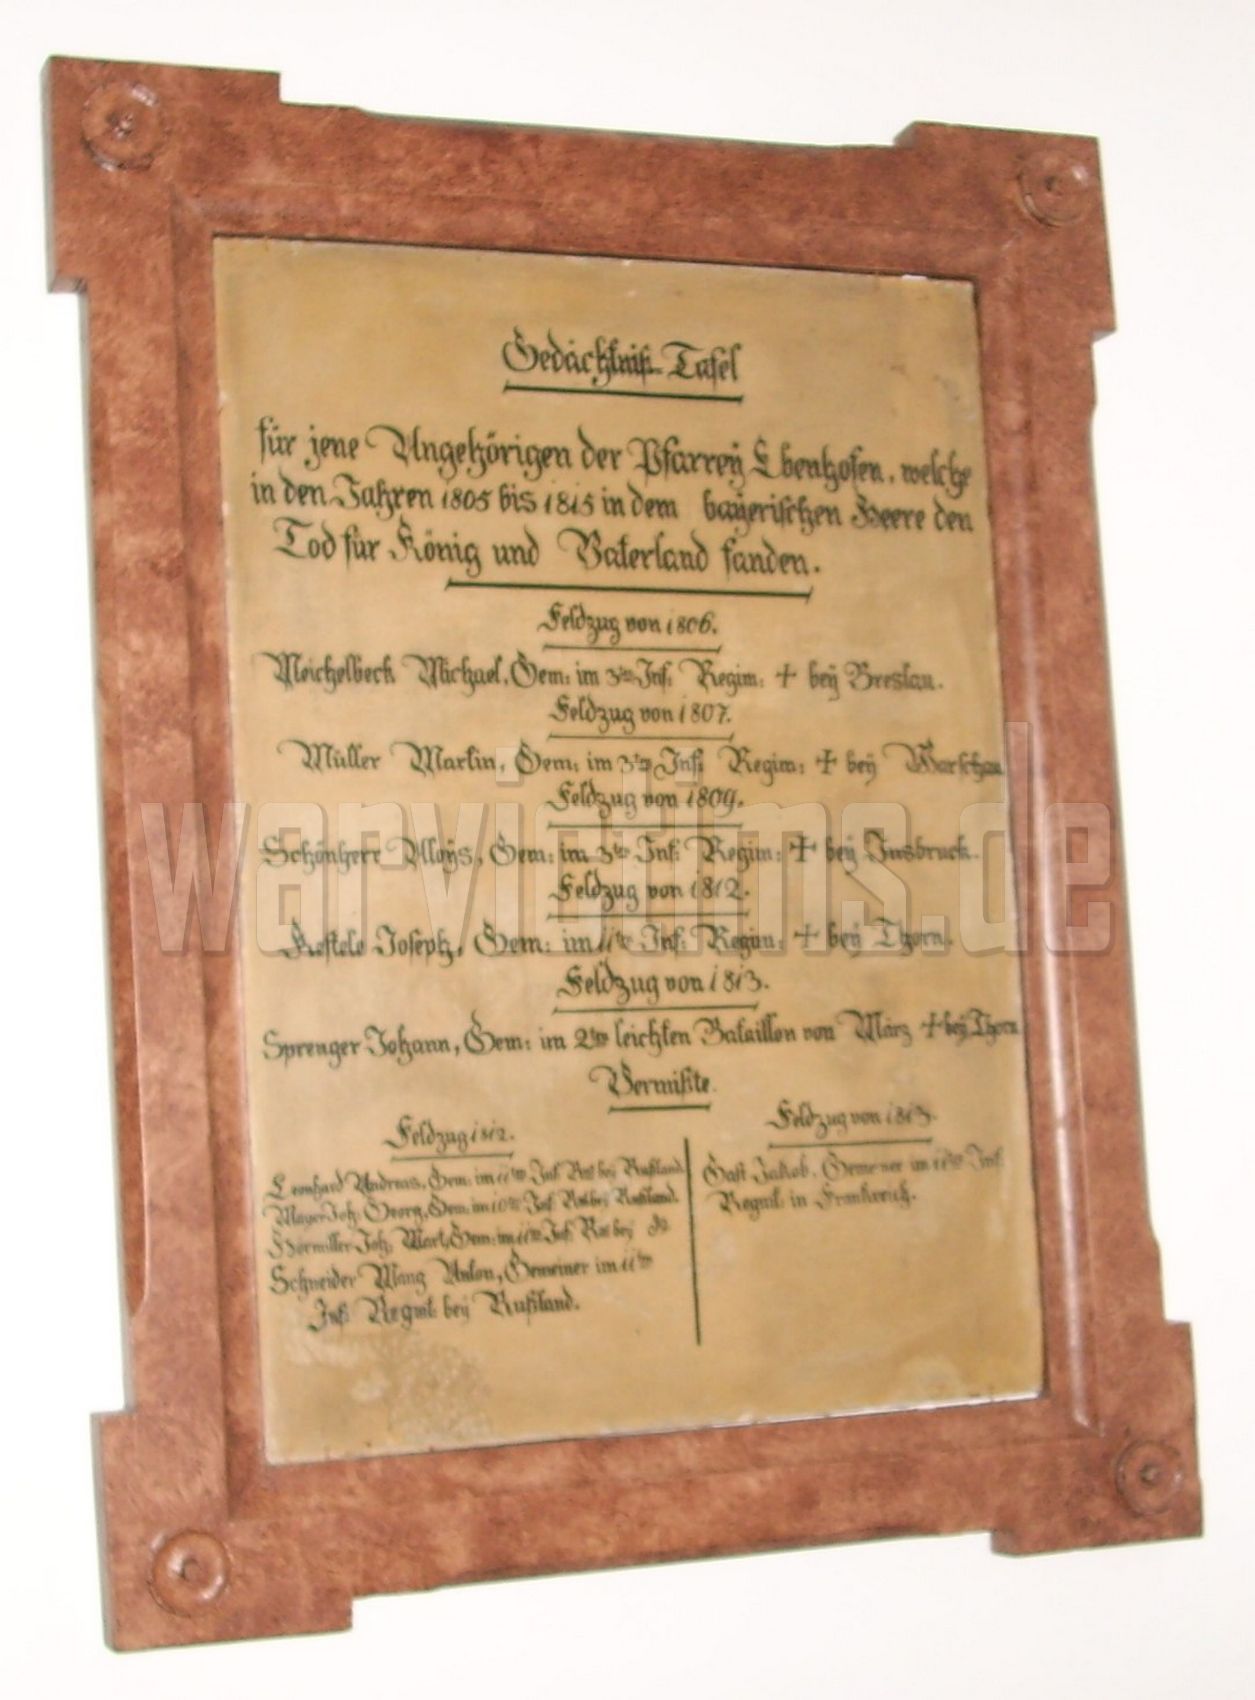 Gedächtniß-Tafel
für jene Angehörigen der Pfarrey Ebenhofen, welche
in den Jahren 1805 bis 1815 in dem bayerischen Heere den
Tod für König und Vaterland fanden.
Feldzug von 1806.
Meichelbeck Michael, Gem: im 3ten Inf: Regim: + bey Breslau.
Feldzug von 1807.
Müller Martin, Gem: im 3ten Inf: Regim: + bey Warschau
Feldzug von 1809.
Schönherr Aloys, Gem: im 3ten Inf: Regim: + bey Insbruck.
Feldzug von 1812.
Kestele Joseph, Gem: im 11ten Inf: Regim: + bey Thorn.
Feldzug von 1813.
Sprenger Johann, Gem: im 2ten leichten Bataillon von März + bey Thorn
Vermißte.
Feldzug 1812.
Leonhard Andreas, Gem: im 11ten Inf: bey Rußland.
Mayer Joh: Georg, Gem: im 10ten Inf: bey Rußland.
Hörmiller Joh: Mart, Gem: im 11ten Inf: bey
Schneider Mang Anton, Gemeiner im 11ten
Inf: Regmt: bey Rußland.
Feldzug von 1813.
Gast Jakob, Gemeiner im 11ten Inf:
Regmt: in Frankreich.
warvictims.de